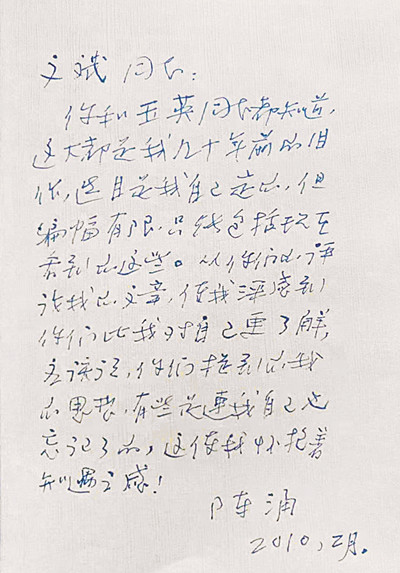 文斌同志：
你和玉英同志都知道，
这大都是我几十年前的旧
作，选目是我自己定的，但
篇幅有限，只能包括现在
看到的这些。从你们的评
论我的文章，使我深感到
你们比我对自己更了解，
应该说，你们提到的我
的思想，有些是连我自己也
忘记了的，这使我怀抱着
知遇之感！
陈涌
2010，2月。